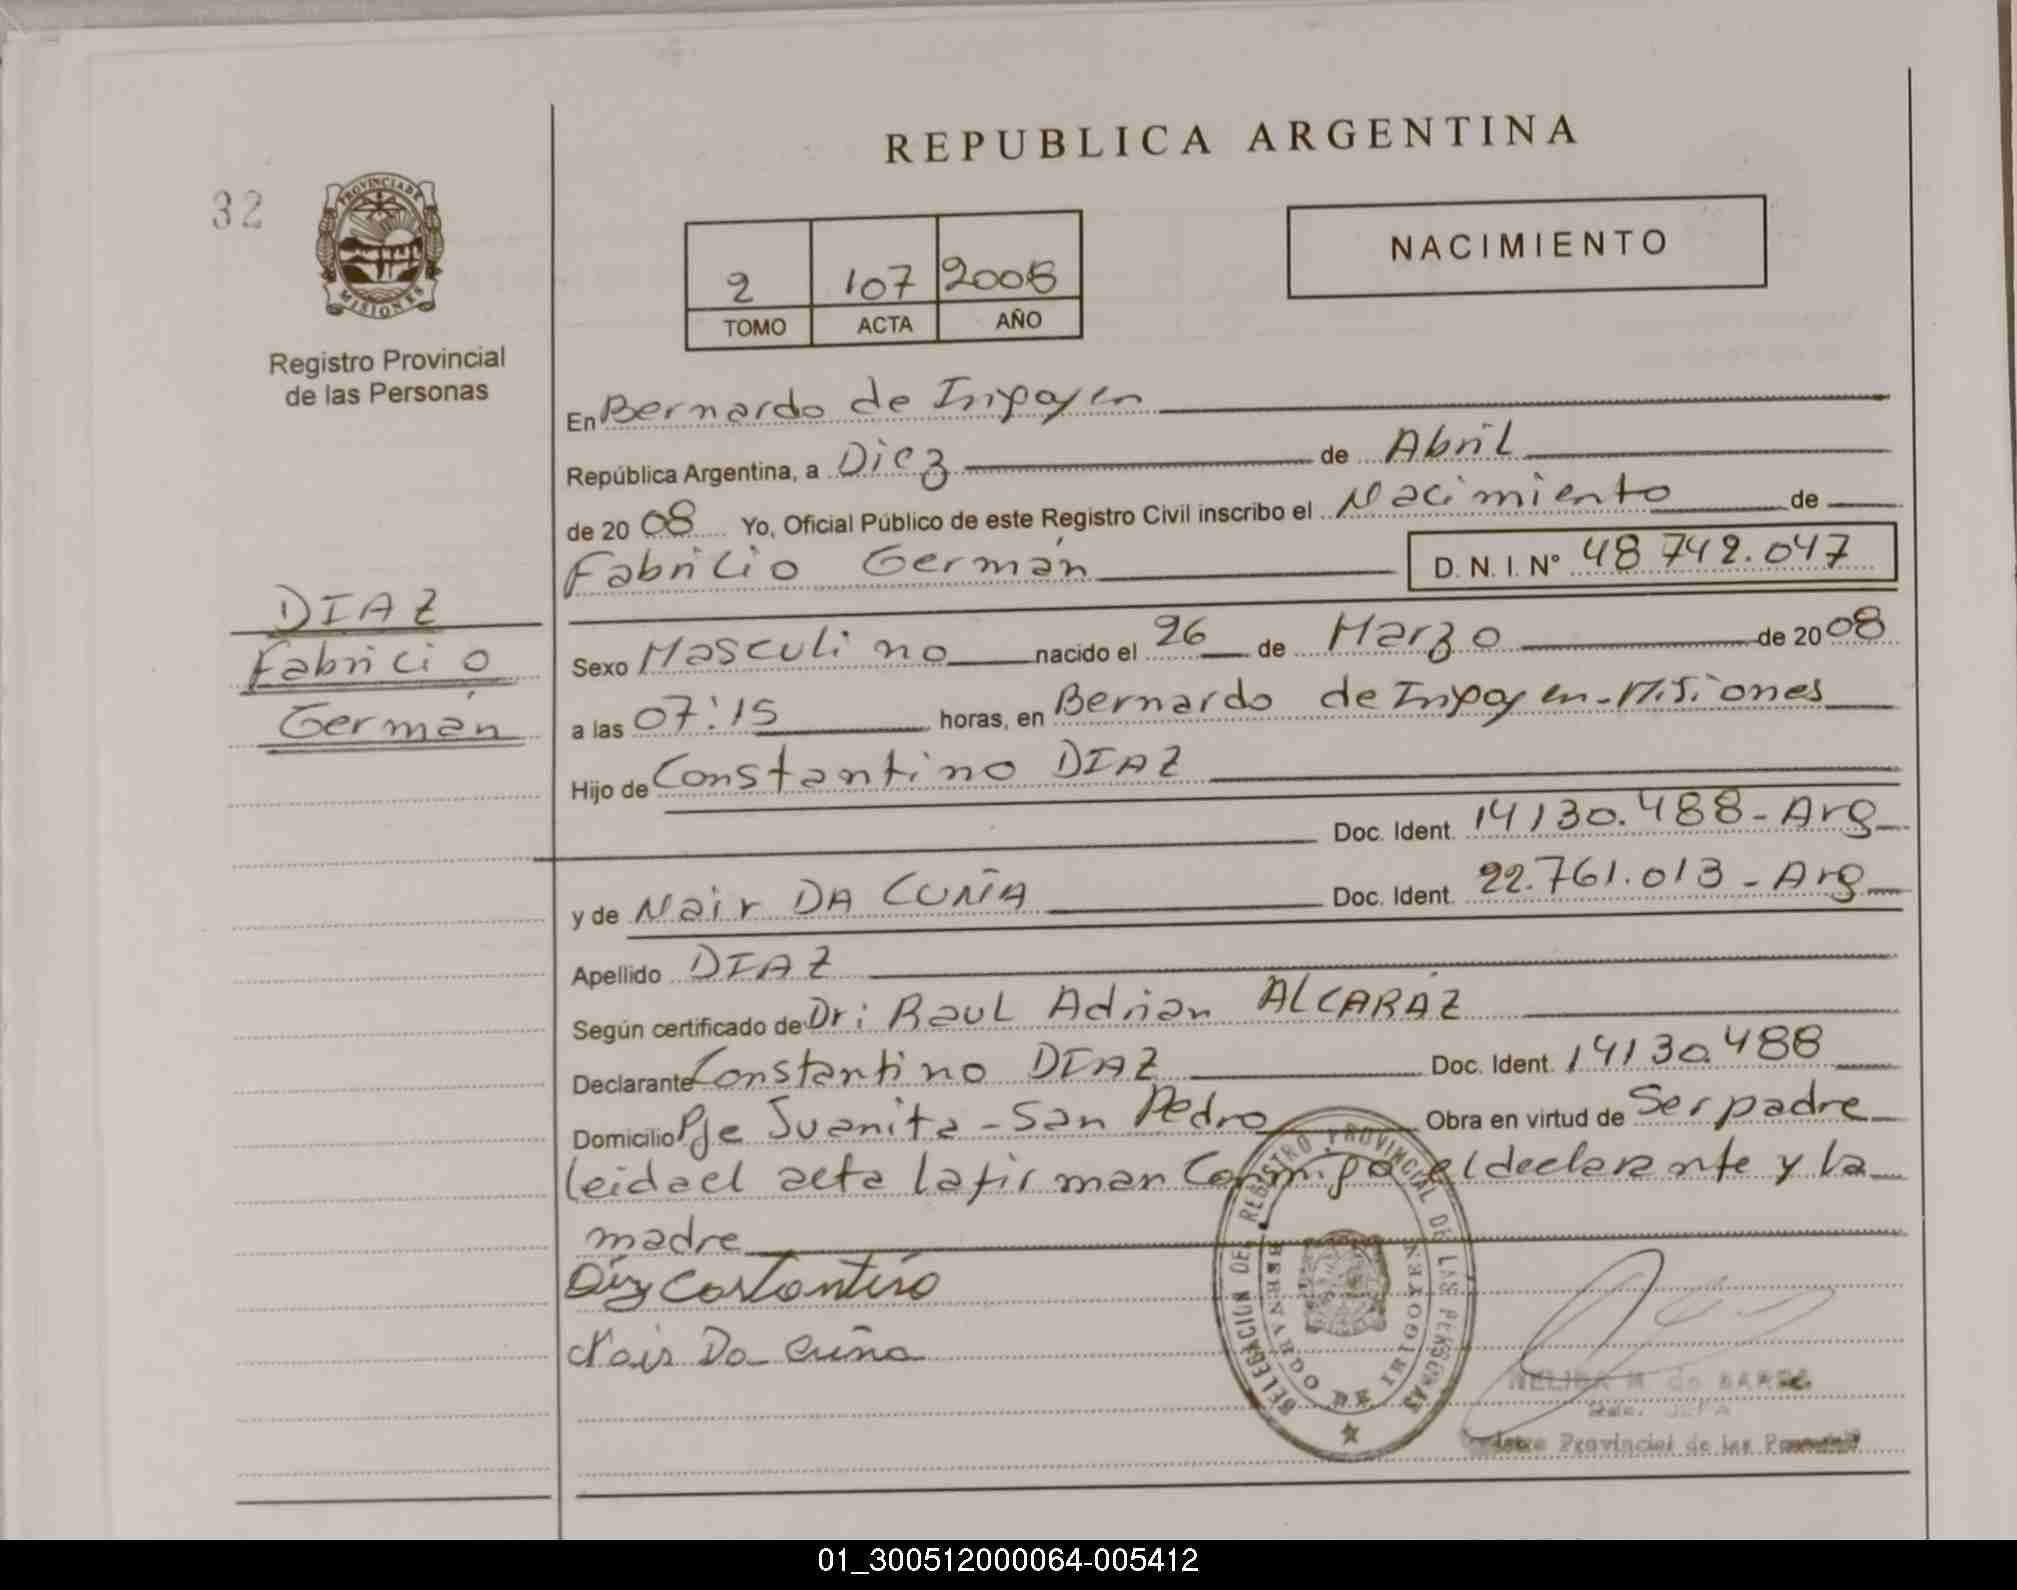 REPUBLICA ARGENTINA
32
PROVINCIA DE
MISIONES
Registro Provincial
de las Personas
NACIMIENTO
2 107 2008
TOMO ACTA AÑO
En Bernardo de Irigoyen
República Argentina, a Diez de Abril
de 20 08 Yo, Oficial Público de este Registro Civil inscribo el Nacimiento de
Fabricio Germán D. N. I. Nº 48 742.047
DIAZ
Fabricio
Germán
Sexo Masculino nacido el 26 de Marzo de 20 08
a las 07:15 horas, en Bernardo de Irigoyen - Misiones
Hijo de Constantino DIAZ
Doc. Ident. 14130.488 - Arg
y de Nair DA CUÑA Doc. Ident. 22.761.013 - Arg
Apellido DIAZ
Según certificado de Dr: Raul Adrian ALCARÁZ
Declarante Constantino DIAZ Doc. Ident. 14130.488
Domicilio Pje Juanita - San Pedro Obra en virtud de Ser padre
leida el acta la firman Conmigo el declarante y la
madre
Diaz Costantino
Nair Da Cuña
DELEGACION DEL REGISTRO PROVINCIAL DE LAS PERSONAS
BERNARDO DE IRIGOYEN
NELIDA M. de
JEFA
Registro Provincial de las Personas
01_300512000064-005412